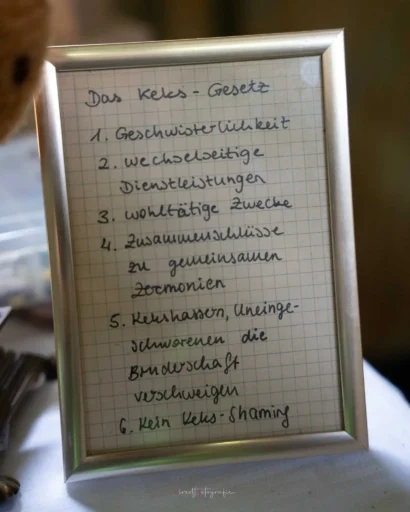 Das Keks-Gesetz
1. Geschwisterlichkeit
2. wechselseitige
Dienstleistungen
3. wohltätige Zwecke
4. Zusammenschlüsse
zu gemeinsamen
Zermonien
5. Kekshassern, Uneinge-
schworenen die
Bruderschaft
verschweigen
6. Kein Keks-Shaming